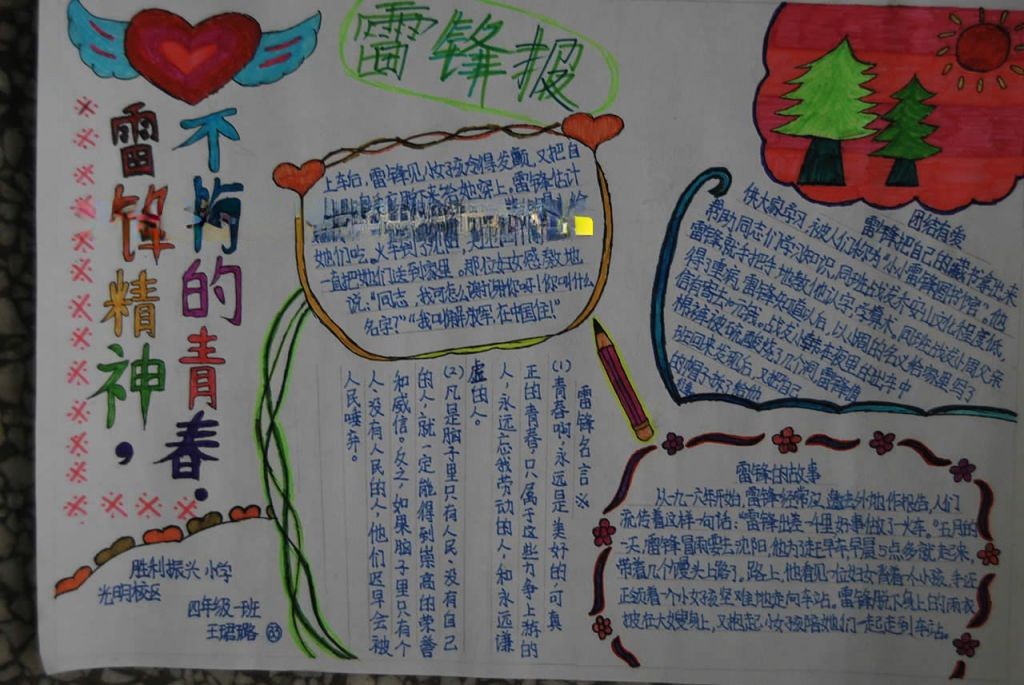 雷锋报
不朽的青春.
雷锋精神，
上车后，雷锋见小女孩冷得发颤，又把自
她们吃。火车到了沈阳
一直把她们送到家里。那位妇女感激地
说：“同志，我可怎么谢谢你呀！你叫什么
名字？”“我叫解放军，在中国住！”
团结有爱
雷锋把自己的藏书拿出来
供大家学习，被人们称为“小小雷锋图书馆”。他
帮助同志们学习知识，同班战友乔安山文化程度低，
雷锋就手把手地教他认字，学算术，同班战友小周父亲
得了重病，雷锋知道以后，以小周的名义给家里写了
信有寄去十元钱。战友小韩在夜里出车中
棉裤被硫酸烧了几个洞，雷锋值
班回来发现后，又把自己
的帽子拆下给他
雷锋名言※
(1)青春啊，永远是美好的，可真
正的青春，只属于这些力争上游的
人，永远忘我劳动的人，和永远谦
虚的人。
(2)凡是脑子里只有人民、没有自己
的人，就一定能得到崇高的荣誉
和威信。反之，如果脑子里只有个
人、没有人民的人，他们迟早会被
人民唾弃。
雷锋的故事
从一九六一年开始，雷锋经常应邀去外地作报告，人们
流传着这样一句话：“雷锋出差一千里，好事做了一火车。”五月的
一天，雷锋冒雨要去沈阳，他为了赶早车，早晨5点多就起来，
带着几个馒头上路了。路上，他看见一位妇女背着个小孩，手还
正领着一个小女孩坚难地走向车站。雷锋脱下身上的雨衣
披在大嫂身上，又抱起小女孩陪她们一起走到车站。
胜利振兴小学
光明校区
四年级一班
王珺璐